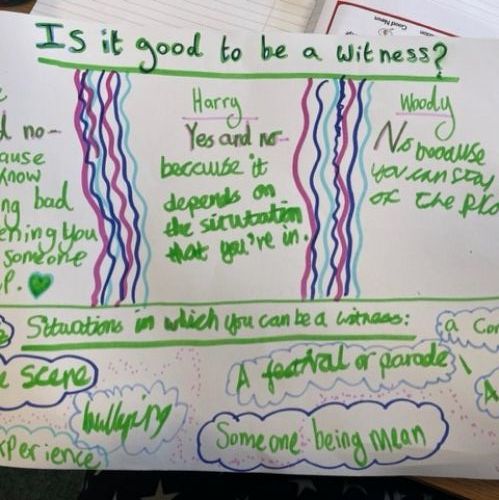 Is it good to be a witness?
d no-
ause
know
ng bad
ening you
someone
p.
Harry
Yes and no
because it
depends on
the situtation
that you're in.
Woody
No because
you can stay
Situations in which you can be a witness:
a Con
e scene
A festival or parade
bullying
Someone being mean
xperience
Good News